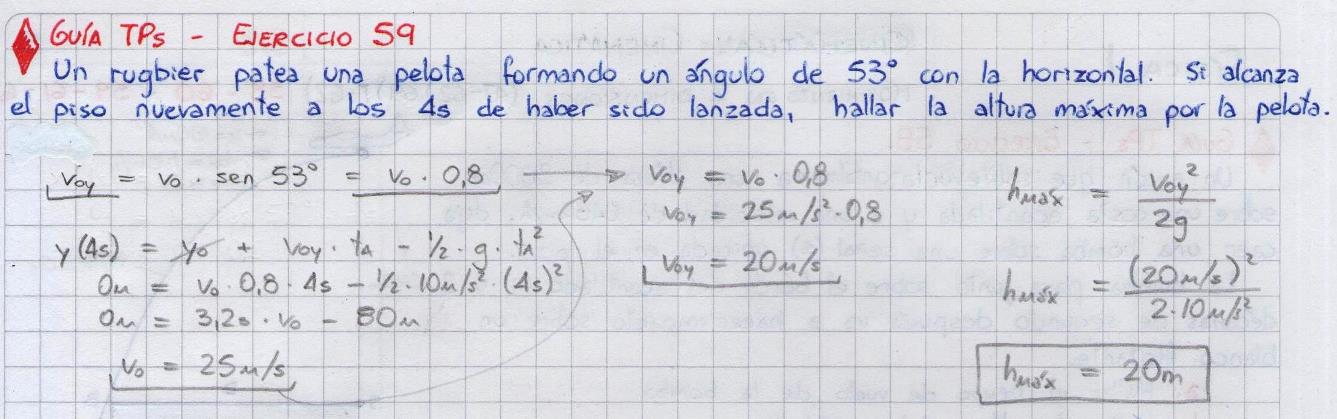 GUÍA TPs - EJERCICIO 59
Un rugbier patea una pelota formando un ángulo de 53° con la horizontal. Si alcanza
el piso nuevamente a los 4s de haber sido lanzada, hallar la altura máxima por la pelota.
Voy = Vo · sen 53° = Vo · 0,8
y(4s) = yo + Voy · tA - 1/2 · g · tA²
0m = Vo · 0,8 · 4s - 1/2 · 10m/s² · (4s)²
0m = 3,2s · Vo - 80m
Vo = 25m/s
Voy = Vo · 0,8
Voy = 25m/s² · 0,8
Voy = 20m/s
hmáx = Voy² / 2g
hmáx = (20m/s)² / 2·10m/s²
hmáx = 20m